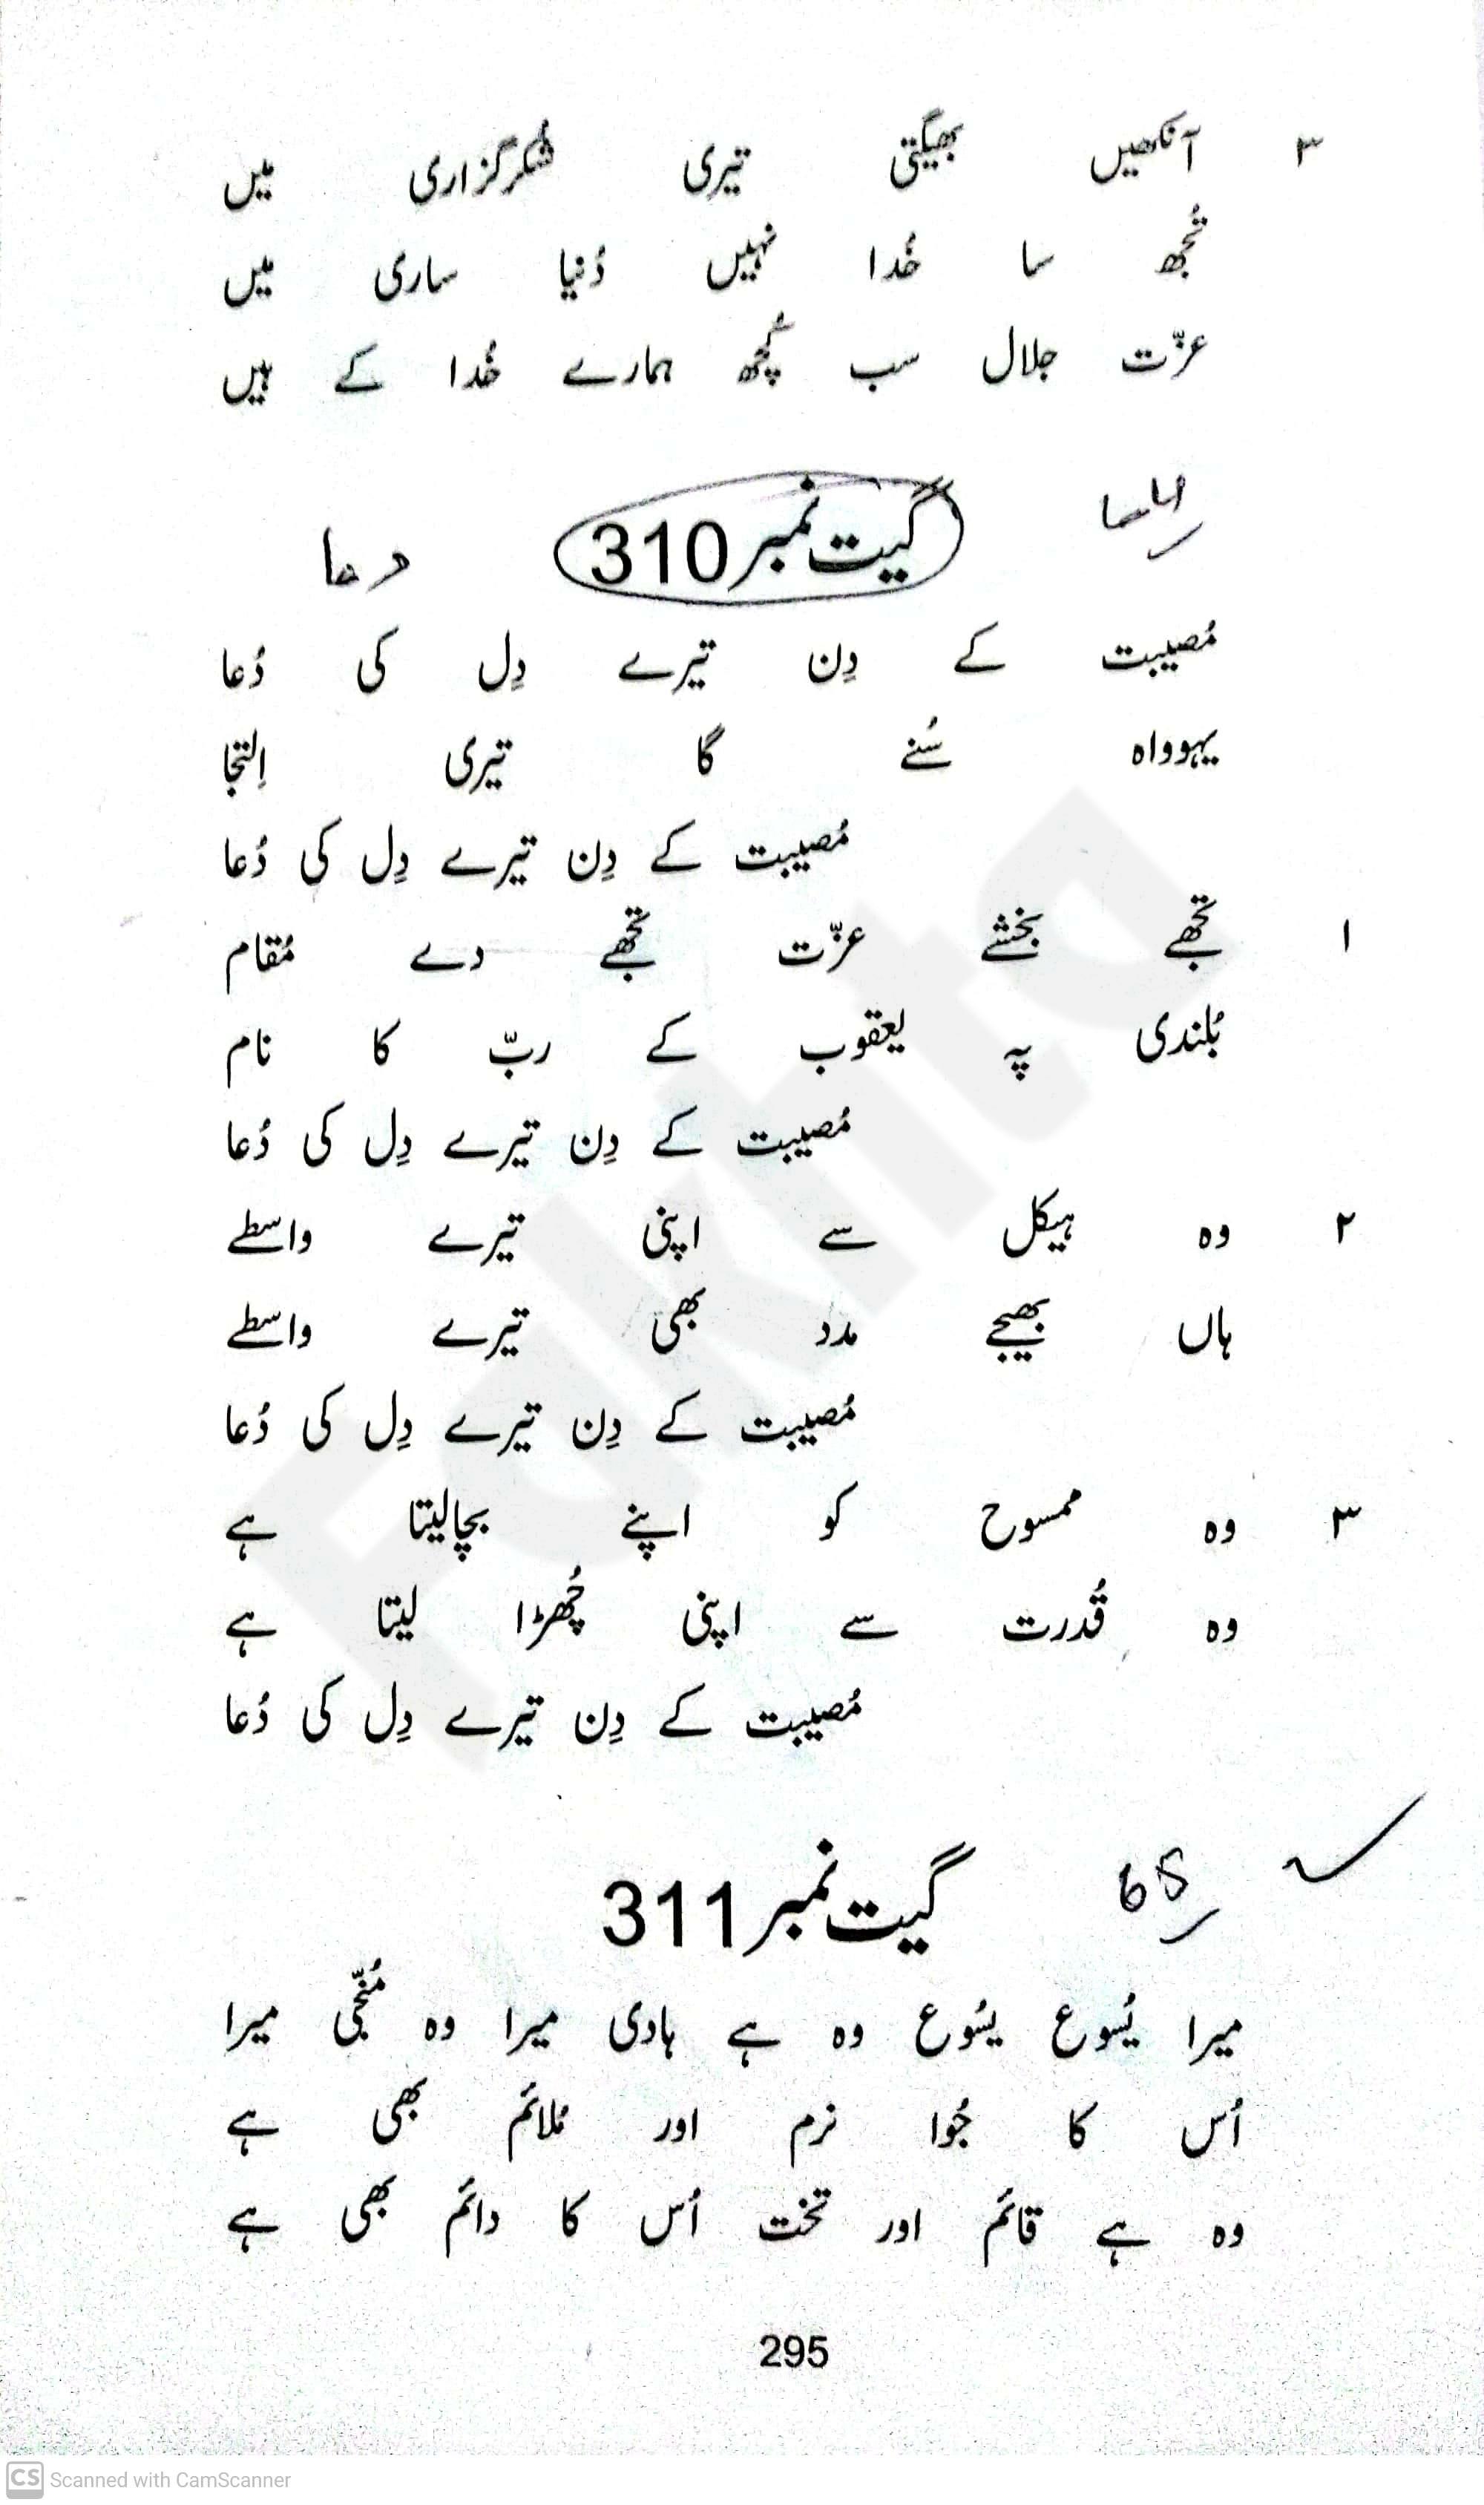 ۳ آنکھیں بھیگتی تیری شُکرگزاری میں
تُجھ سا خُدا نہیں دُنیا ساری میں
عزّت جلال سب کُچھ ہمارے خُدا کے ہیں
گیت نمبر 310
دعا
مُصیبت کے دِن تیرے دِل کی دُعا
یہوواہ سُنے گا تیری اِلتجا
مُصیبت کے دِن تیرے دِل کی دُعا
۱ تجھے بخشے عزّت تجھے دے مُقام
بُلندی پہ یعقوب کے ربّ کا نام
مُصیبت کے دِن تیرے دِل کی دُعا
۲ وہ ہیکل سے اپنی تیرے واسطے
ہاں بھیجے مدد بھی تیرے واسطے
مُصیبت کے دِن تیرے دِل کی دُعا
۳ وہ ممسوح کو اپنے بچالیتا ہے
وہ قُدرت سے اپنی چُھڑا لیتا ہے
مُصیبت کے دِن تیرے دِل کی دُعا
گیت نمبر 311
میرا یُسوع یسُوع وہ ہے ہادی میرا وہ مُنجّی میرا
اُس کا جُوا نرم اور مُلائم بھی ہے
وہ ہے قائم اور تخت اُس کا دائم بھی ہے
295
Fakhta
CS Scanned with CamScanner